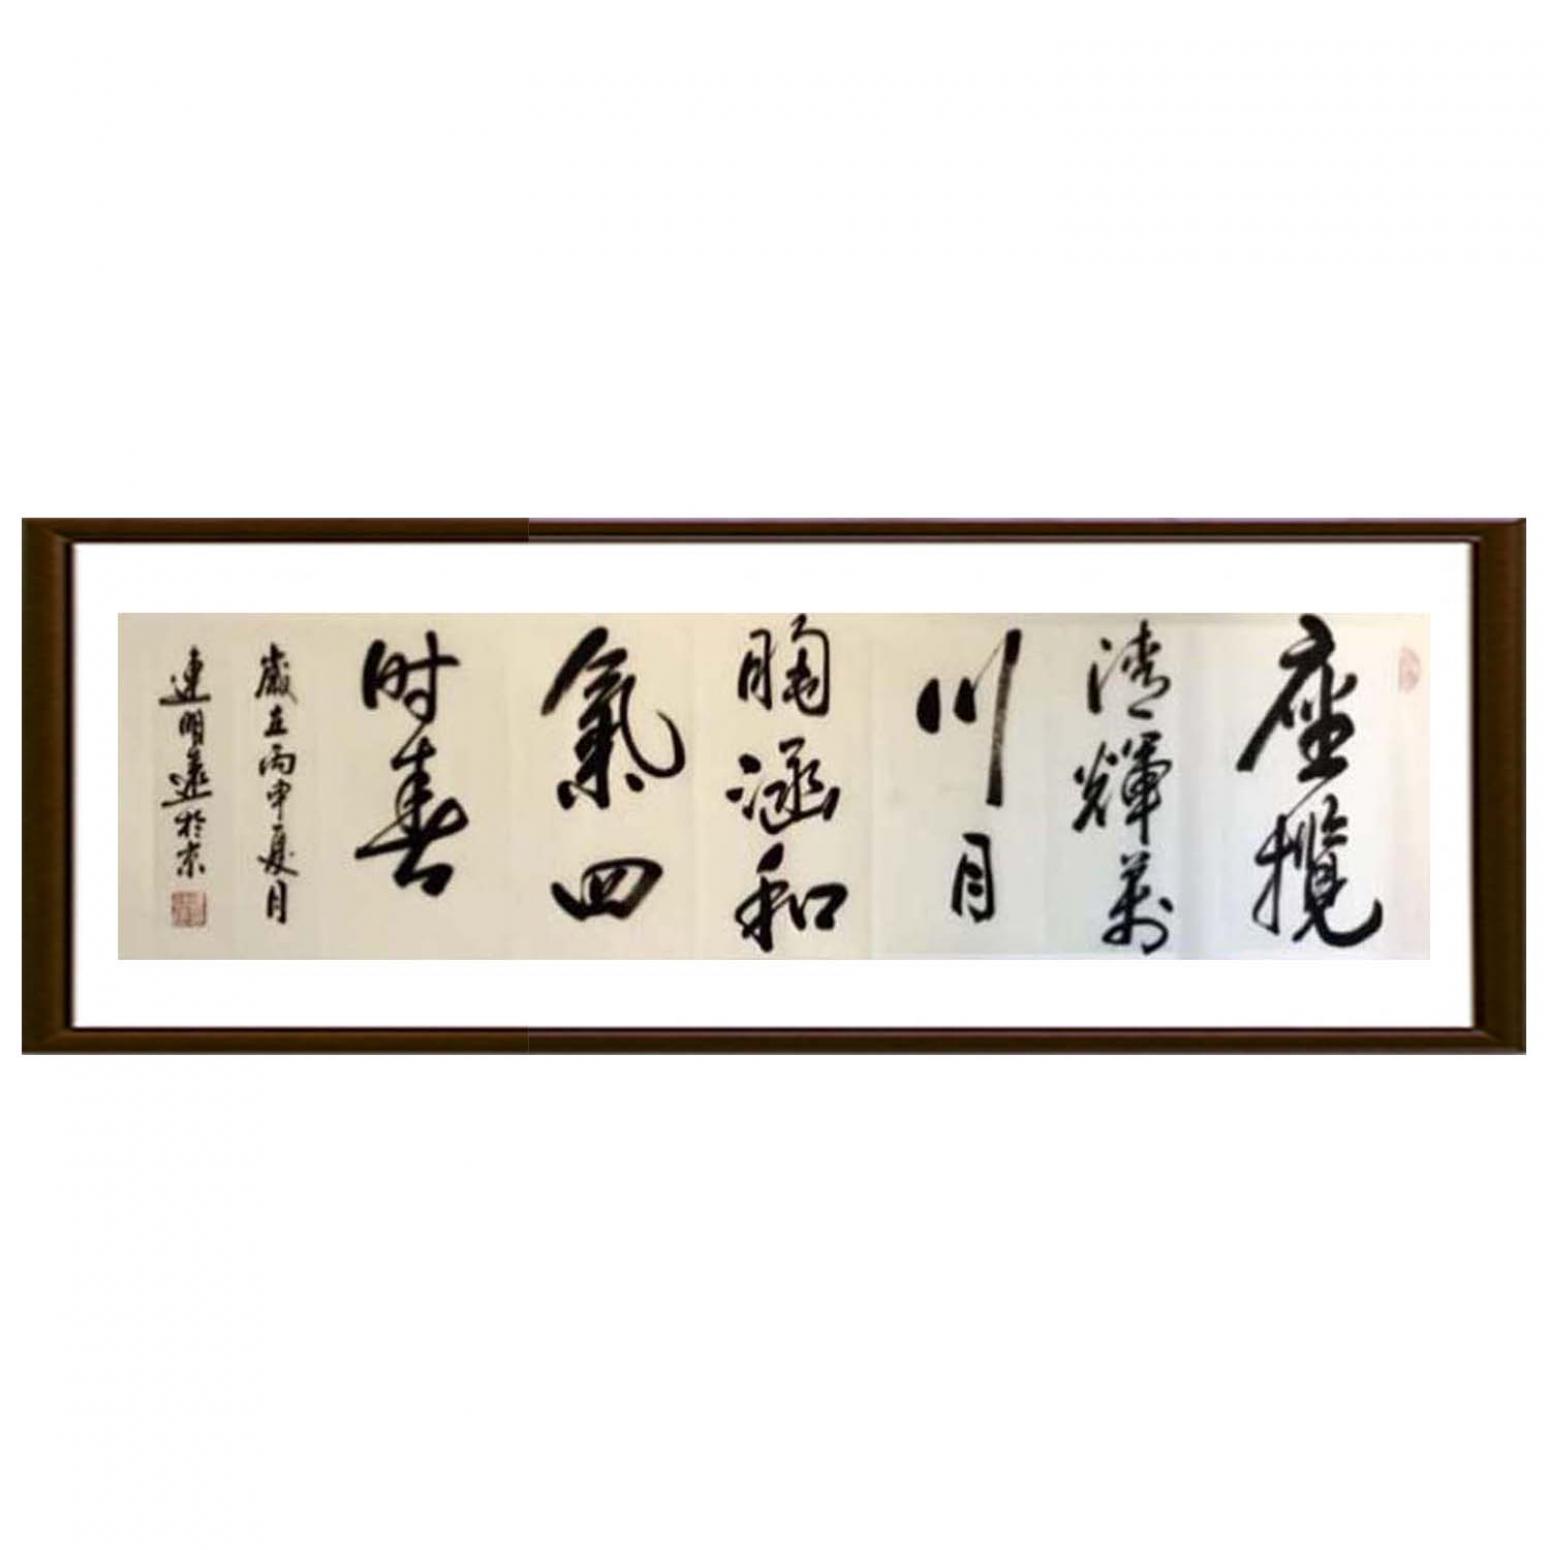 座攬
清輝萬
川月
胸涵和
氣四
时春
歲在丙申夏月
連明
於京